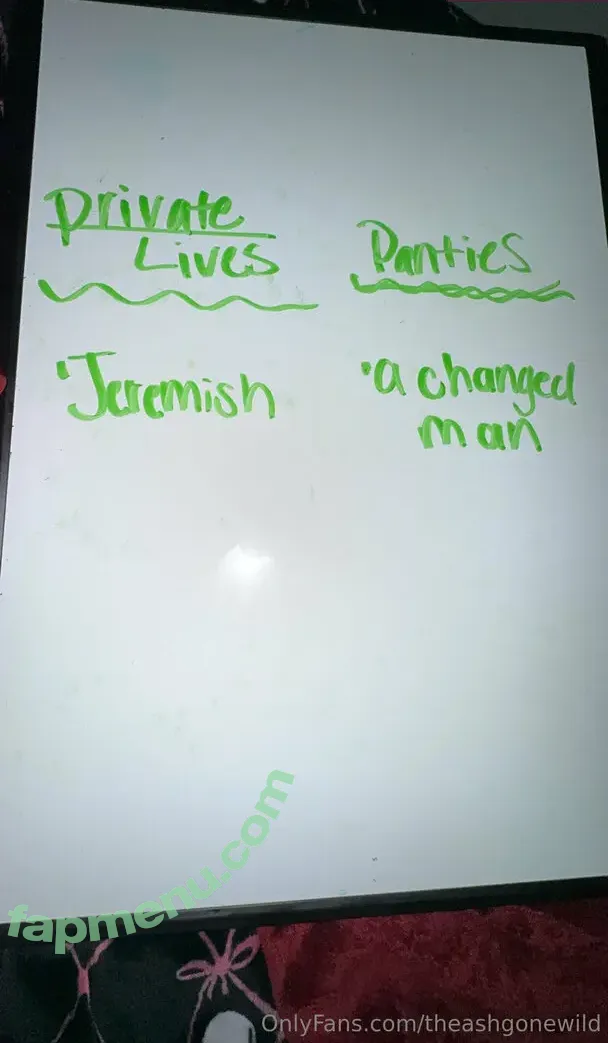 Private
Lives
Panties
'Jeremish
•a changed
man
fapmenu.com
OnlyFans.com/theashgonewild